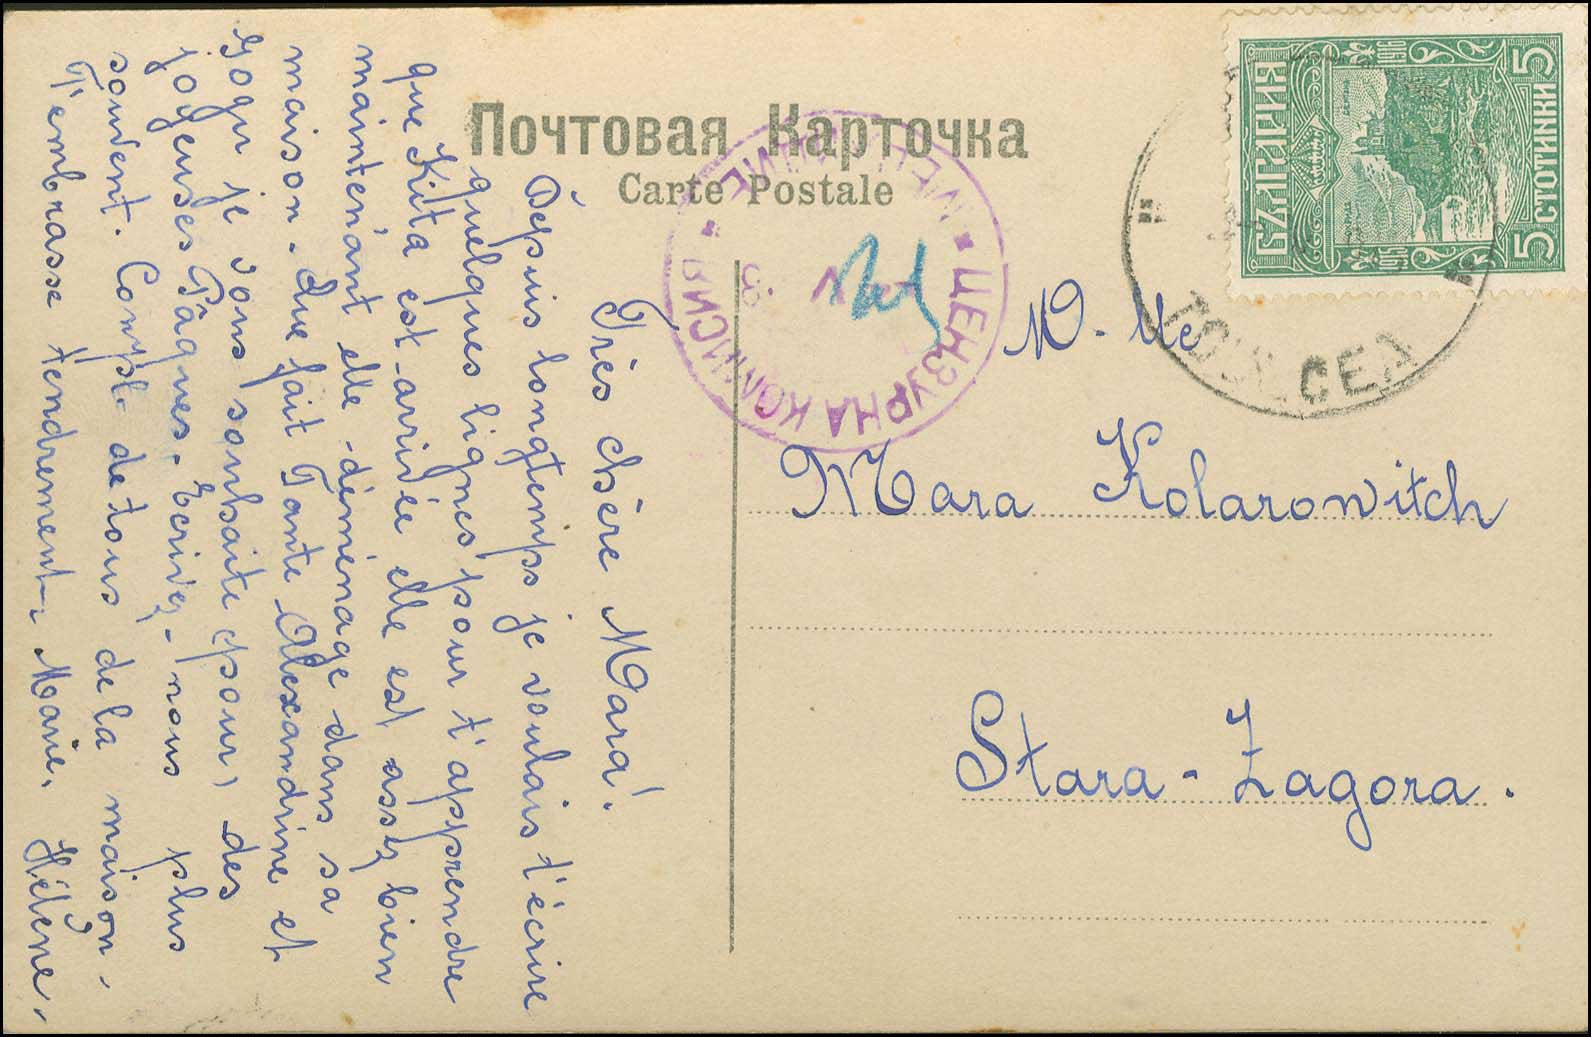 Почтовая Карточка
Carte Postale
Très chère Mara!
Depuis longtemps je voulais t'écrire
quelques lignes pour t'apprendre
que Kita est arrivée elle est assez bien
maintenant elle déménage dans sa
maison. Que fait Tante Alexandrine et
Gogu je vous souhaite pour, des
joyeuses Pâques. Ecrivez-nous plus
souvent. Compl. de tous de la maison.
T'embrasse tendrement. Marie. Hélène.
M-lle
Mara Kolarowitch
Stara-Zagora.
БЪЛГАРИЯ
5 СТОТИНКИ 5
ЦЕНЗУРНА КОМИСИЯ
TOULCEA